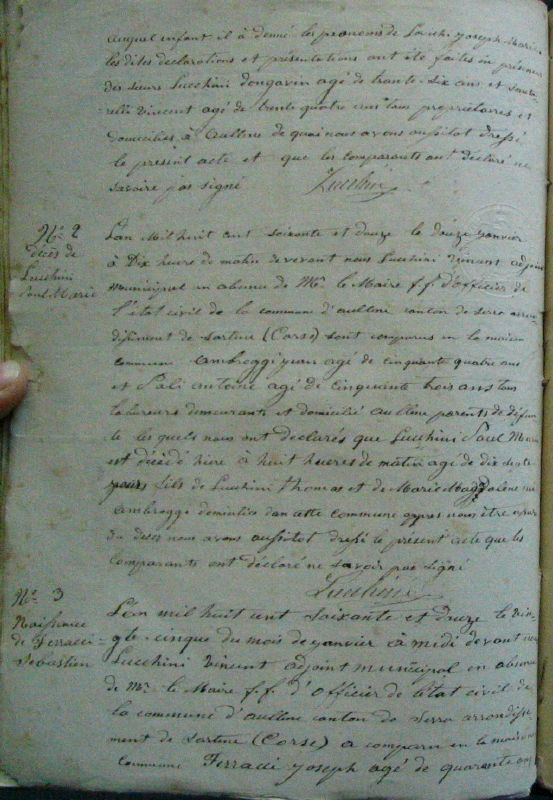 auquel enfant il a donné les prenoms de Louis Joseph Marie
les dites declarations et présentations ont été faites en présence
des sieurs Lucchini dongavin agé de trante-six ans et Santa-
relli vincent agé de trente quatre ans tous propriétaires et
domiciliés à aullene de quoi nous avons aussitot dressé
le present acte et que les comparants ont déclaré ne
savoire pas signé Lucchini
N° 2
Décès de
Lucchini
Paul Marie
L'an Mil huit cent soixante et douze le douze yanvier
à Dix heure de matin devevant nous Lucchini vincent adjoint
municipal en absence de Mr le Maire f.f. d'officier de
l'état civil de la commune d'aullene canton de serra arron-
dissiment de Sartene (Corse) sont comparus en la maison
commune ambroggi yean agé de cinquante quatre ans
et Poli antoine agé de cinquante trois ans tous
laboureurs demeurants et domicilié aullene parents de défun-
te les quels nous ont declarés que Lucchini Paul Marie
est décédé hiere à huit heures de matin agé de dix sept
jours fils de Lucchini thomas et de Marie Magdalene née
ambroggi domicilié dan cette commune apprès nous être assuré
du deces nous avons aussitot dressé le présent acte que les
Comparants ont déclaré ne savoir pas signé
Lucchini
N° 3
Naissance
de Ferracci
Sebastien
L'an mil huit cent soixante et douze le vin-
gte-cinque du mois de yanvier à midi devant nous
Lucchini vincent adjoint municipal en absence
de Mr le Maire f.f. d'officier de l'état civil de
la commune d'aullene canton de Serra arrondisse-
ment de Sartene (Corse) a comparu en la maison
commune Ferracci yoseph agé de quarante ans